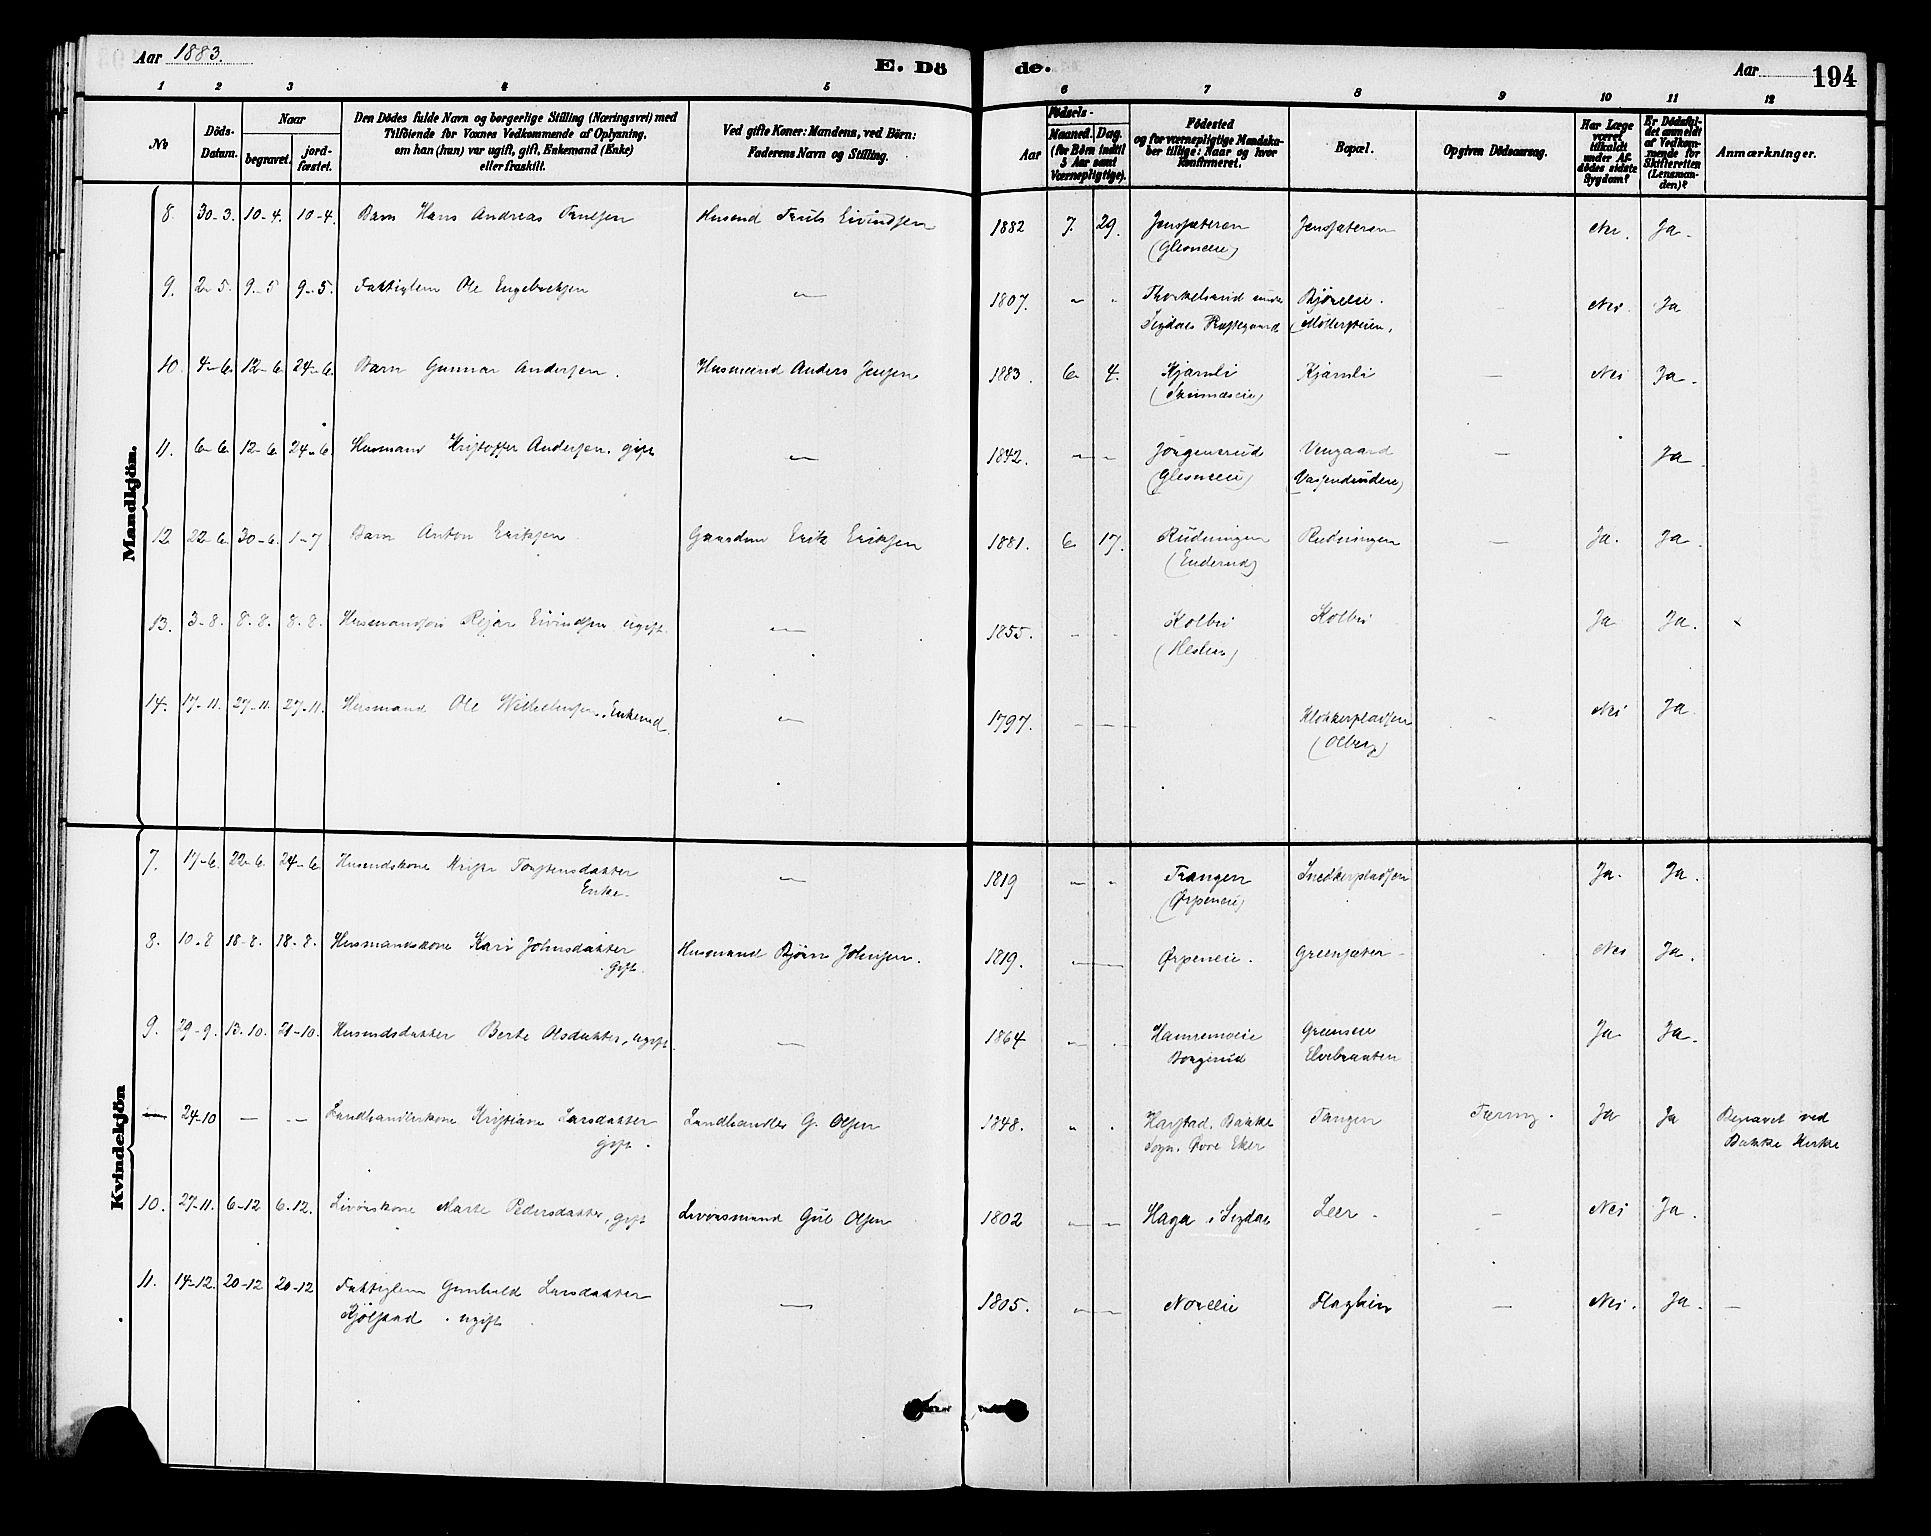 Aar 1883.
E. Dö
de.
Aar
194
1 2 3 4 5 6 7 8 9 10 11 12
No
Döds-
Datum.
Naar
begravet.
jord-
fæstet.
Den Dödes fulde Navn og borgerlige Stilling (Næringsvei) med
Tilföiende for Voxnes Vedkommende af Oplysning,
om han (hun) var ugift, gift, Enkemand (Enke)
eller fraskilt.
Ved gifte Koner: Mandens, ved Börn:
Faderens Navn og Stilling.
Födsels-
Aar
Maaned. Dag.
(for Börn indtil
5 Aar samt
Værnepligtige).
Födested
og for værnepligtige Mandska-
ber tillige: Naar og hvor
konfirmeret.
Bopæl.
Opgiven Dödsaarsag.
Har Læge
været
tilkaldt
under Af-
dödes sidste
Sygdom?
Er Dödsfal-
det anmeldt
af Vedkom-
mende for
Skifteretten
(Lensman-
den)?
Anmærkninger.
Mandkjön.
8. 30-3. 10-4. 10-4. Barn Hans Andreas Trulsen Husmd Truls Eivindsen 1882 7. 29. Jenssæteren Jenssæteren Nei. Ja.
(Glesneeie)
9. 2-5. 9-5 9-5. Fattiglem Ole Engebretsen — 1807. " " Thorkelsrud under Bjøreeie. Nei. Ja
Sigdals Præstegaard
10. 4-6. 12-6. 24-6. Barn Gunnar Andersen. Husmand Anders Jensen 1883. 6. 4. Kjærnli Kjærnli — Nei Ja.
11. 6-6. 12-6. 24-6. Husmand Kristoffer Andersen. gift — 1842. — — Jörgensrud Vengaard — Ja
(Glesneeie)
12. 22-6. 30-6. 1-7 Barn Anton Eriksen Gaardm Erik Eriksen 1881. 6 17. Rudningen Rudningen — Ja. Ja.
(Enderud)
13. 3-8. 8-8. 8-8. Husmandssøn Reiar Eivindsen ugift. — 1855. - - Kolbri Kolbri Ja Ja. x
14. 17-11. 27-11. 27-11. Husmand Ole Wilhelmsen. Enkemd. — 1797. — — Klokkerpladsen - Nei Ja.
(Olberg)
Kvindekjön
7. 17-6. 22-6. 24-6 Husmdskone Torstensdatter — 1819 " " Trangen Snedkerpladsen Ja. Ja.
Enke. (Ørpeneie)
8. 10-8 18-8. 18-8. Husmandskone Kari Johnsdatter Husmand Bjørn Johnsen. 1819. — — Ørpeneie. Greensæter - Nei Ja.
gift.
9. 29-9. 13-10. 21-10. Husmdsdatter Berte Olsdatter, ugift. — 1864 - . Hannemoeie Greenseie Ja Ja.
Borgerud Elvebraaten
— 24-10 — — Landhandlerkone Kristiane Larsdatter Landhandler G. Olsen 1848. " . Harstad. Bakke Tangen Tæring. Ja Ja Begravet ved
gift. Sogn. Øvre Eker Bakke Kirke
10. 27-11. 6-12 6-12. Livørskone Marte Pedersdatter, gift Livørsmand Gul Olsen 1802 — — Haga i Sigdal Leer - — Nei Ja.
11. 14-12. 20-12 20-12 Fattiglem Gunhild Larsdatter — 1805. — — Noreeie — Nei. Ja. —
Kjølstad. ugift.